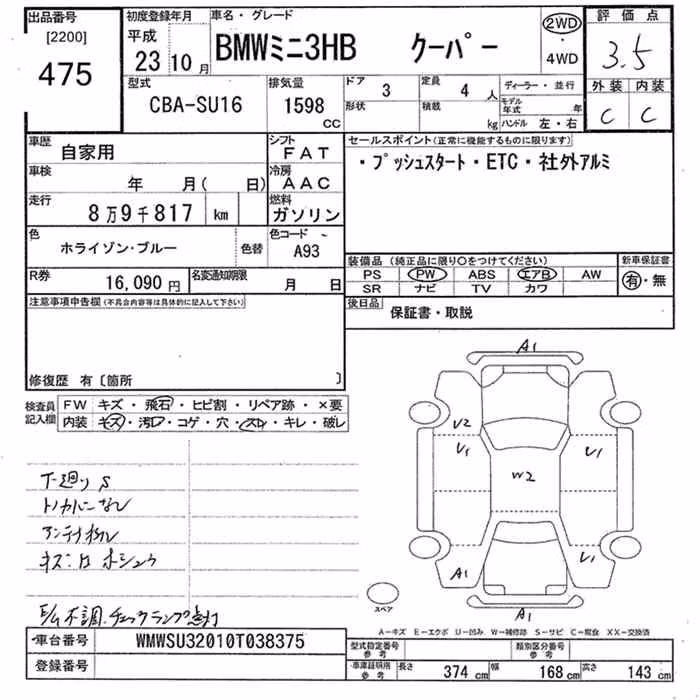 出品番号
[2200]
475
初度登録年月
平成
23 10 月
車名・グレード
BMWミニ3HB クーパー
2WD
4WD
評価点
3.5
外装 内装
C C
型式
CBA-SU16
排気量
1598
CC
ドア 3
形状
定員 4 人
積載 kg
ディーラー・並行
モデル年式 年
ハンドル 左・右
車歴
自家用
シフト
FAT
車検
年 月( 日)
冷房
AAC
走行
8万9千817 km
燃料
ガソリン
色
ホライゾン・ブルー
色替
色コード
A93
R券
16,090 円
名変通知期限
月 日
セールスポイント(正常に機能するものに限ります)
・プッシュスタート・ETC・社外アルミ
装備品(純正品に限り○をつけてください)
新車保証書
PS PW ABS エアB AW
SR ナビ TV カワ
有・無
後日品
保証書・取説
注意事項申告欄(不具合内容等は具体的に記入して下さい)
修復歴 有〔箇所 〕
検査員記入欄
FW キズ・飛石・ヒビ割・リペア跡・×要
内装 キズ・汚レ・コゲ・穴・スレ・キレ・破レ
下廻り S
トノカバーなし
アンテナ
キズ
E/G不調.チェックランプ点灯
A1
V2
V1
V1
W2
A1
V1
A1
スペア
A-キズ E-エクボ U-凹み W-補修跡 S-サビ C-腐食 XX-交換済
車台番号
WMWSU32010T038375
登録番号
型式指定番号 参考
類別区分番号 参考
車庫証明用 参考
長さ 374 cm 幅 168 cm 高さ 143 cm